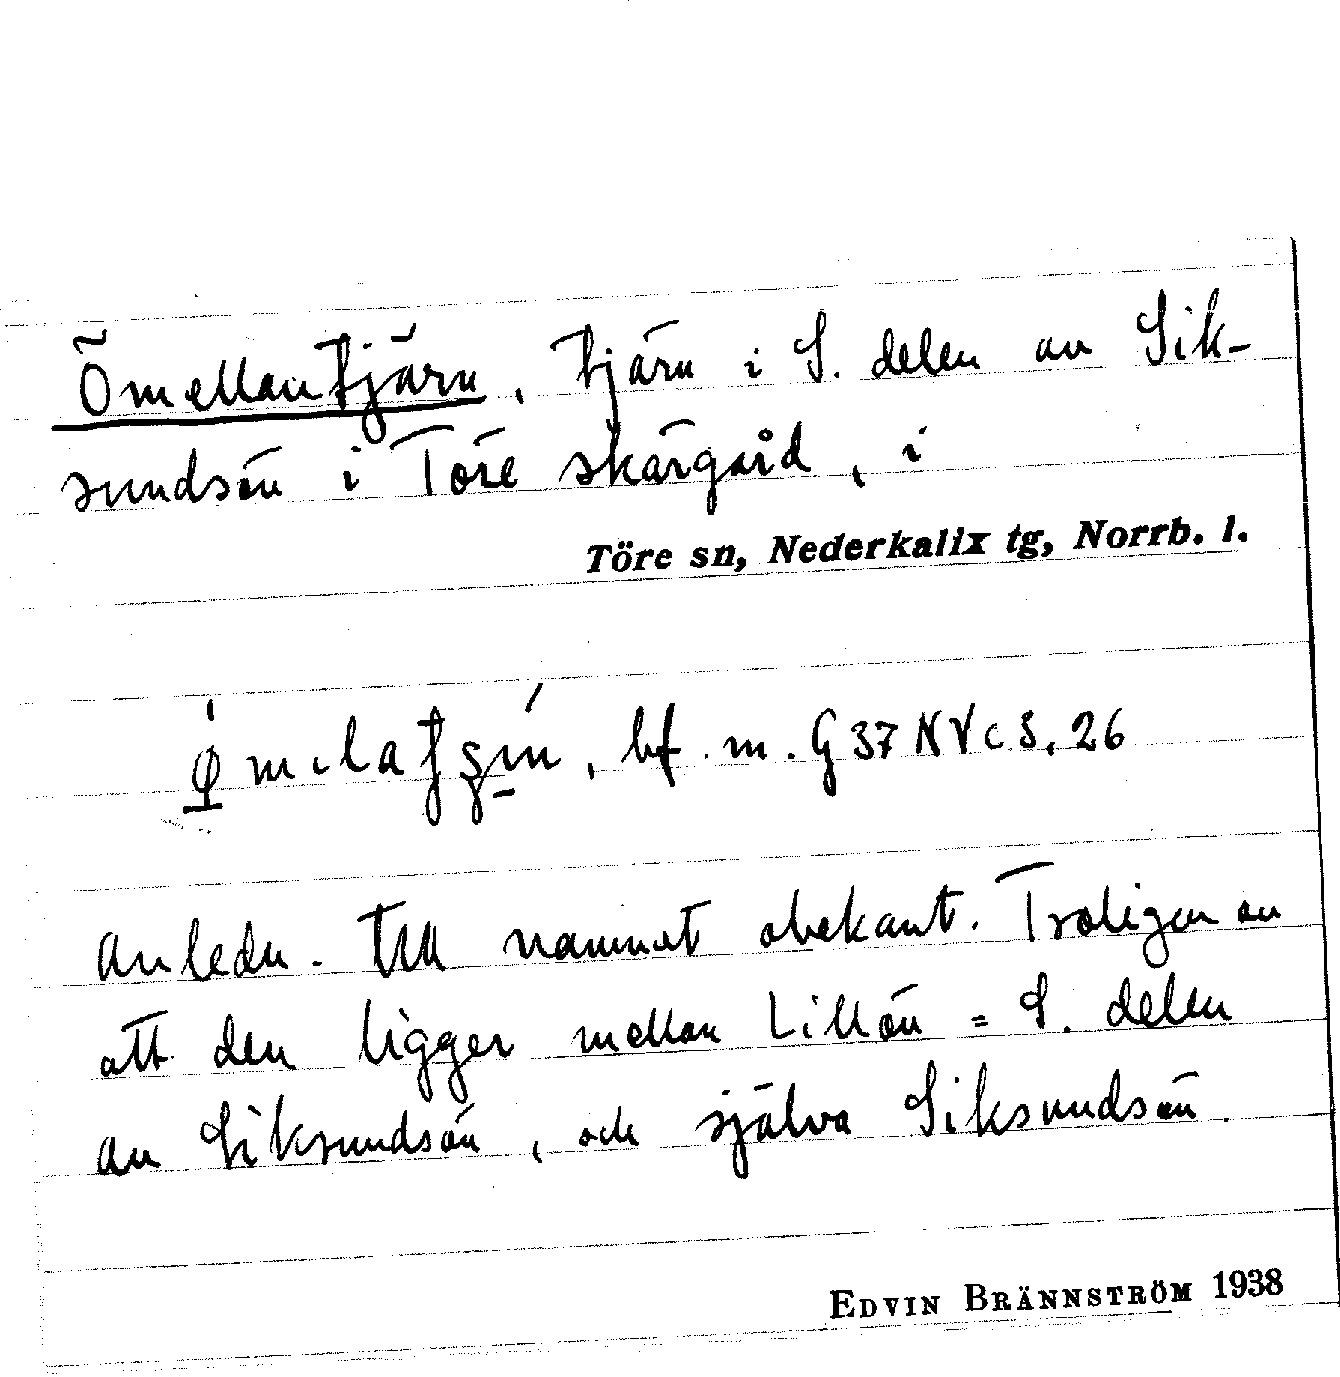 Ömellantjärn, tjärn i S. delen av Sik-
sundsön i Töre skärgård, i
Töre sn, Nederkalix tg, Norrb. l.
bf. m. G 37 NV c S. 26
Anledn. till namnet obekant. Troligen av
att den ligger mellan Lillön = S. delen
av Siksundsön, och själva Siksundsön.
EDVIN BRÄNNSTRÖM 1938